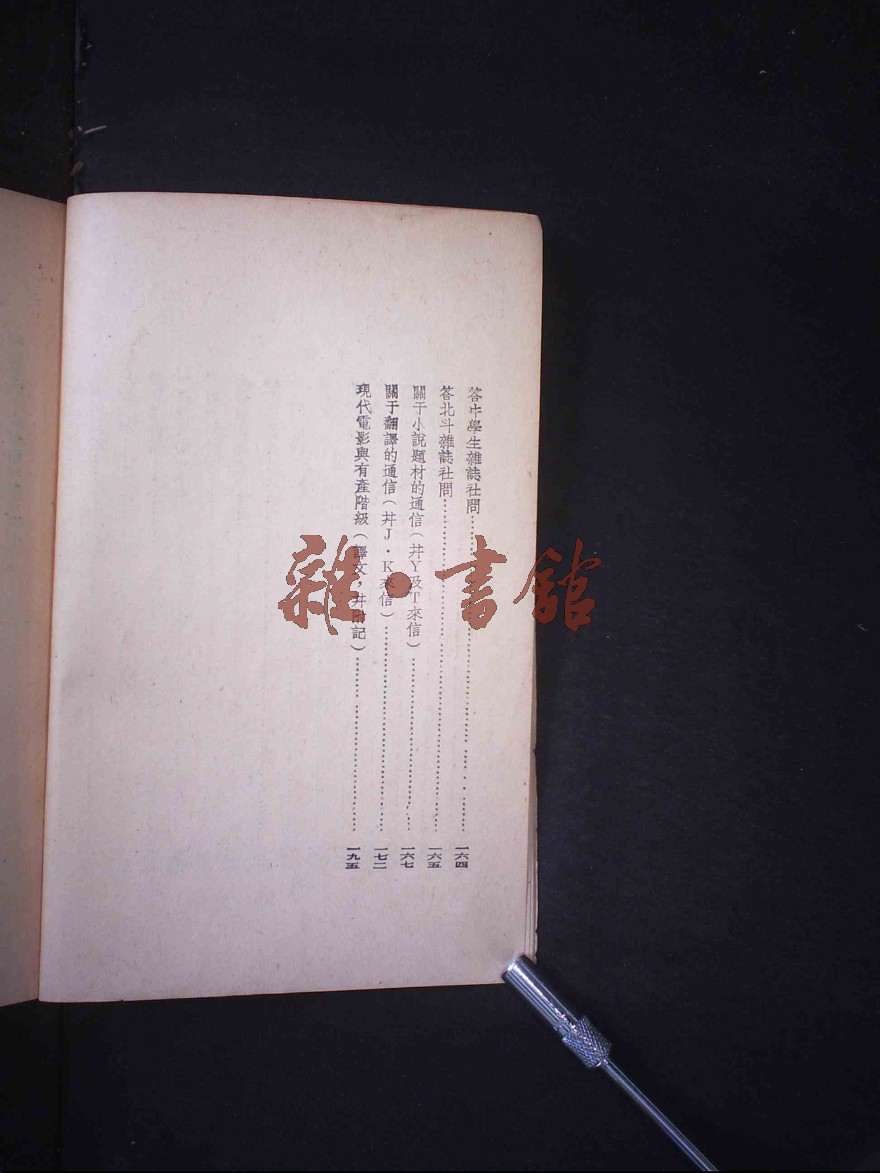 答中學生雜誌社問……一六四
答北斗雜誌社問……一六五
關于小說題材的通信（并Y及T來信）……一六七
關于翻譯的通信（并J・K來信）……一七二
現代電影與有產階級（譯文，并附記）……一九五
雜・書館